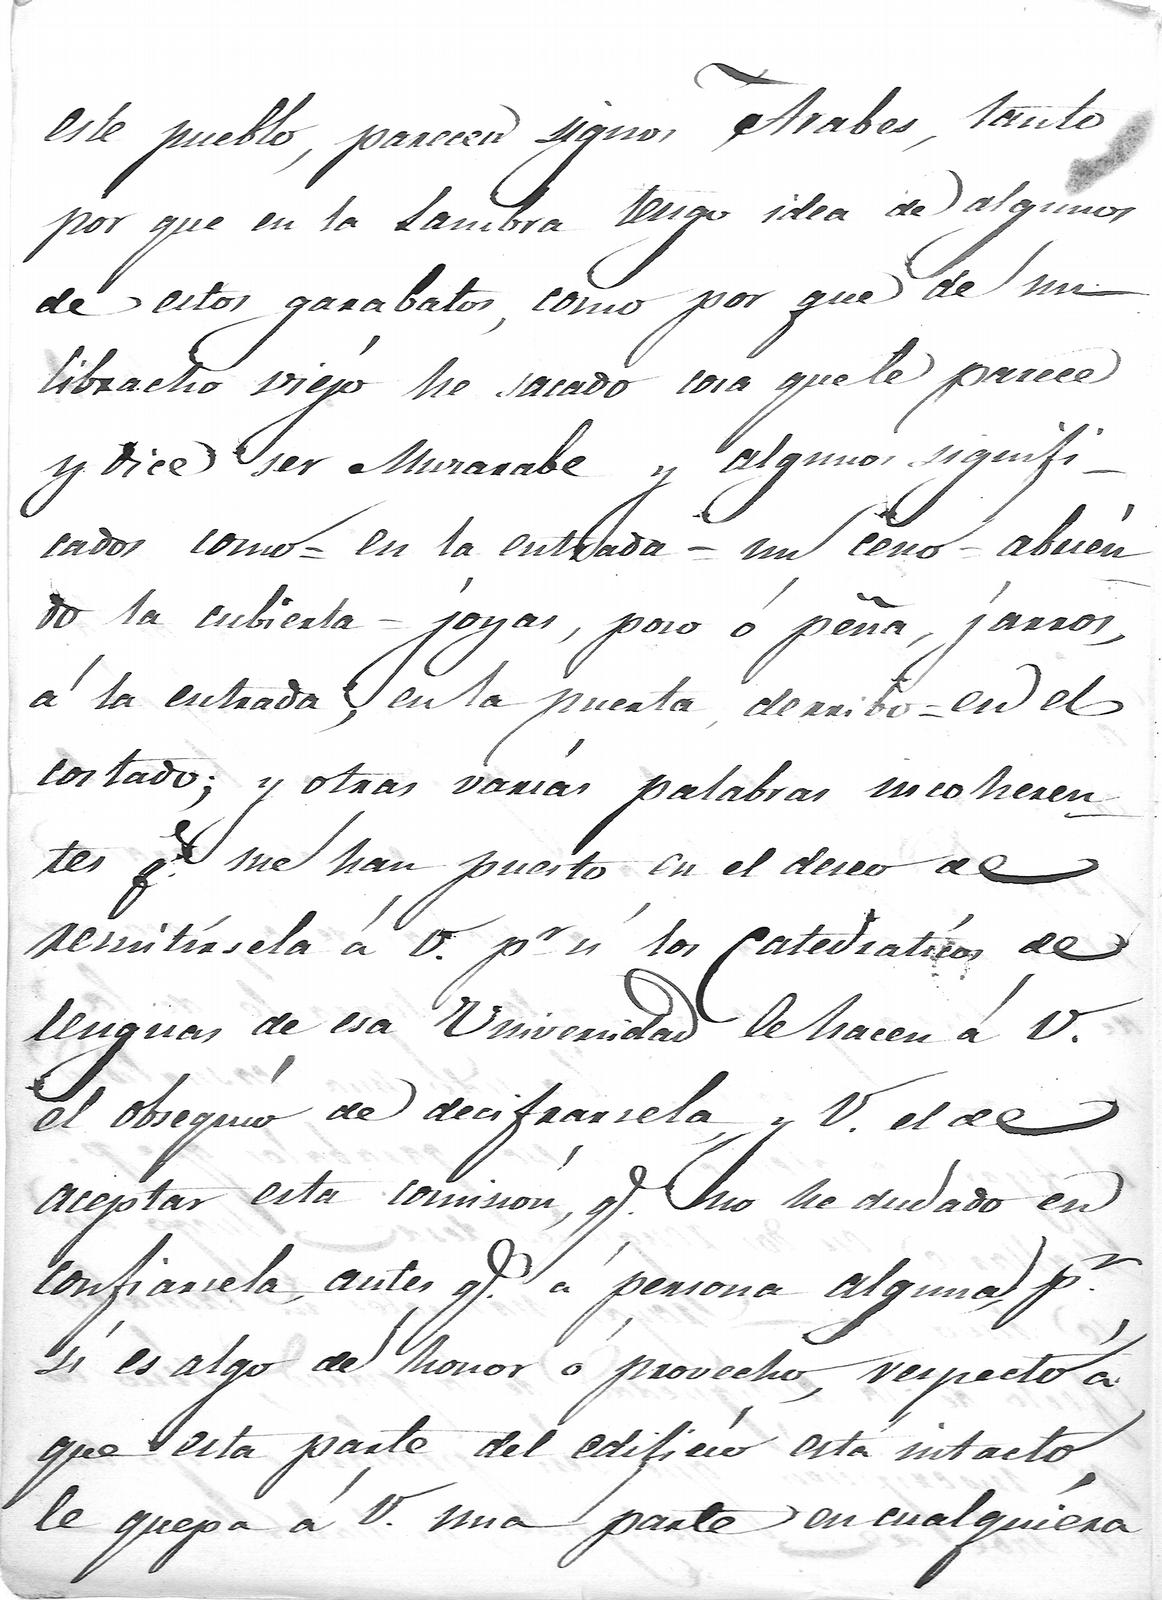 este pueblo, parecen signos Arabes, tanto
por que en la Lambra tengo idea de algunos
de estos garabatos, como por que de un
libracho viejo he sacado cosa que le parece
y dice ser Murarabe y algunos signifi-
cados como = en la entrada = un ceno = abrién
do la cubierta = joyas, poso ó peña, jarros,
á la entrada; en la puerta, derribo = en el
costado; y otras varias palabras incoheren
tes q.e me han puesto en el deseo de
remitírsela á V. pr si los Catedraticos de
lenguas de esa Universidad le hacen á V.
el obsequio de decifrarsela, y V. el de
aceptar esta comisión, q.e no he dudado en
confiarsela, antes q.e á persona alguna, pr.
si es algo de honor ó provecho, respecto á
que esta parte del edificio está intacto
le quepa á V. una parte en cualquiera